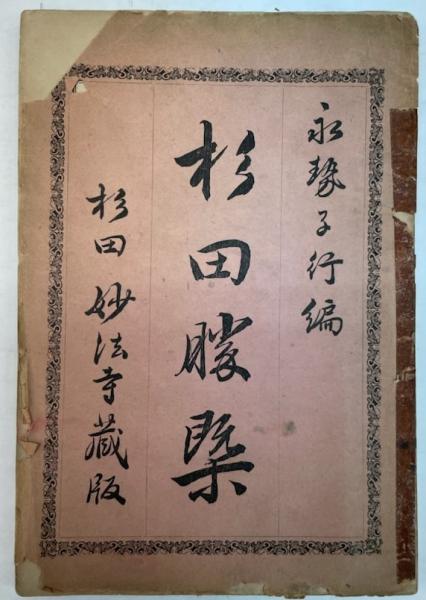 永勢子行編
杉田勝槩
杉田妙法寺藏版